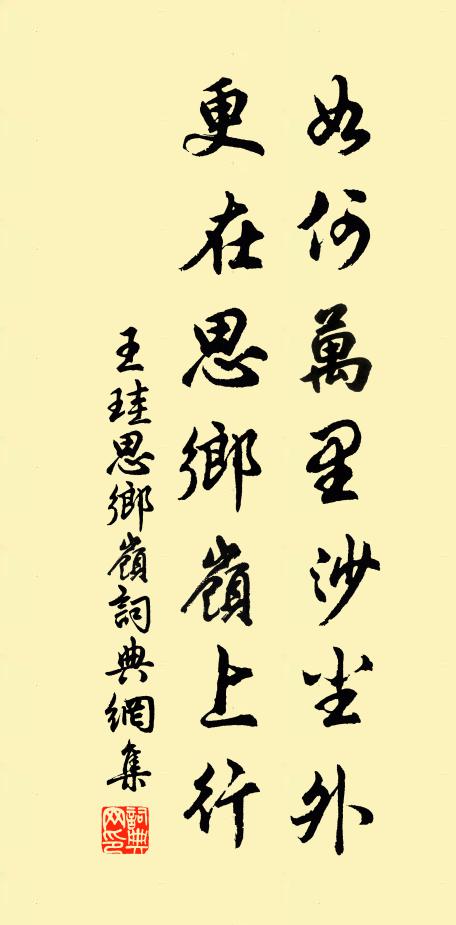 如何萬里沙尘外
更在思鄉嶺上行
王珪思鄉嶺詞典網集
詞典网印